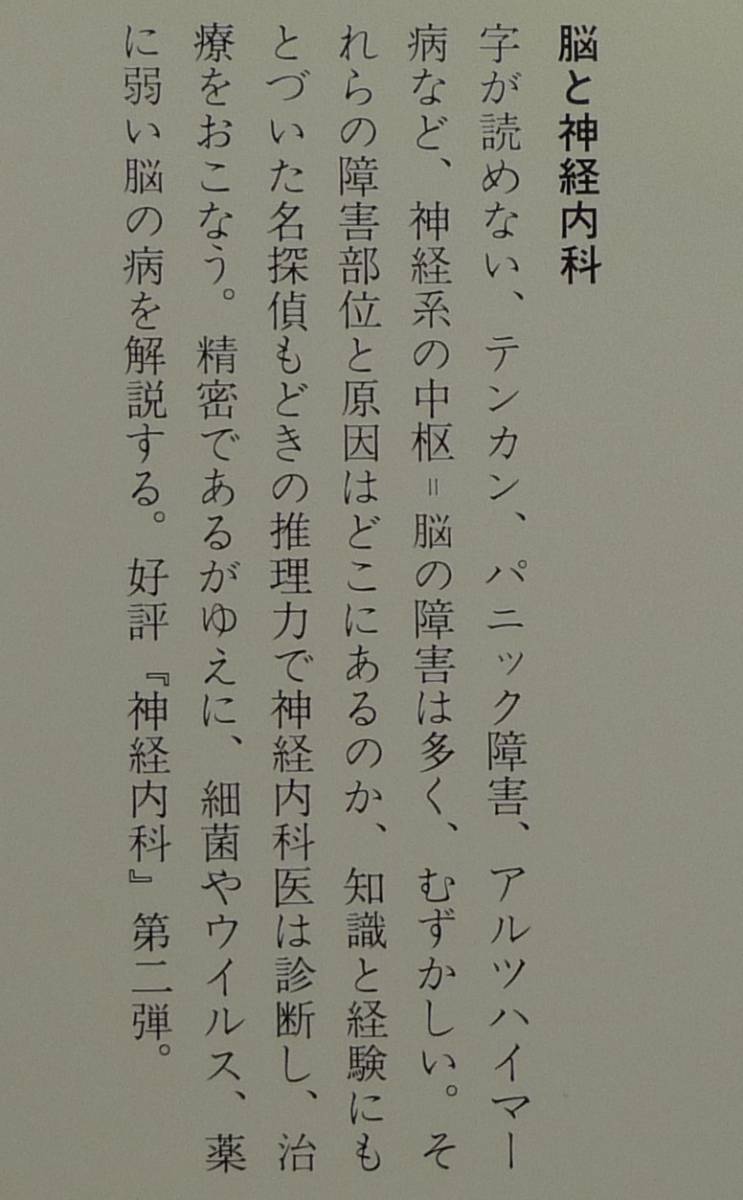 脳と神経内科
字が読めない、テンカン、パニック障害、アルツハイマー
病など、神経系の中枢＝脳の障害は多く、むずかしい。そ
れらの障害部位と原因はどこにあるのか、知識と経験にも
とづいた名探偵もどきの推理力で神経内科医は診断し、治
療をおこなう。精密であるがゆえに、細菌やウイルス、薬
に弱い脳の病を解説する。好評『神経内科』第二弾。